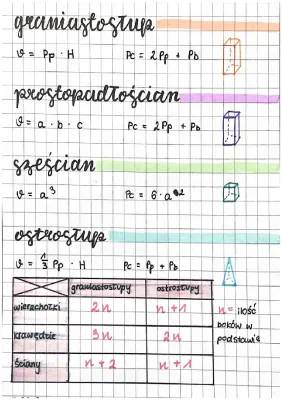 graniastosłup
V = Pp · H  Pc = 2Pp + Pb
prostopadłościan
V = a · b · c  Pc = 2Pp + Pb
sześcian
V = a³  Pc = 6 · a²
ostrosłup
V = 1/3 Pp · H  Pc = Pp + Pb
graniastosłupy ostrosłupy
wierzchołki 2n n + 1
krawędzie 3n 2n
ściany n + 2 n + 1
n = ilość
boków w
podstawie